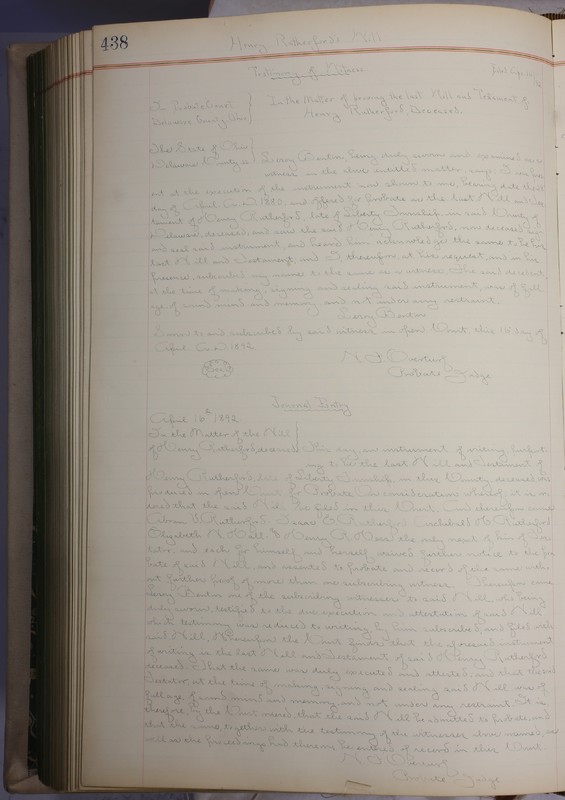 438
Henry Rutherford's Will
Testimony of Witness
In Probate Court
Delaware County, Ohio
In the Matter of proving the last Will and Testament of
Henry Rutherford Deceased.
The State of Ohio
Delaware County ss
Leroy being duly sworn and examined as a
witness in the above entitled matter, says: I
at the execution of the instrument now shown to me, bearing date the
day of April A.D. 1880 and offered for probate as the last Will and Tes-
tament of Henry Rutherford, late of Liberty Township, in said County of
Delaware, deceased, and said the said Henry Rutherford, now deceased sign
and seal said instrument, and heard him acknowledge the same to be his
last Will and Testament, and I thereupon, at his request, and in his
presence, subscribed my name to the same as a witness. The said decedent
at the time of making, signing and sealing said instrument, was of full
age, of sound mind and memory, and not under any restraint.
Leroy
Sworn to and subscribed by said witness in open Court, this 16 day of
April A.D. 1892
Seal
Probate Judge
Journal Entry
April 16th 1892
In the Matter of the Will
of Henry Rutherford, deceased
This day, an instrument of writing, purport-
ing to be the last Will and Testament of
Henry Rutherford, late of Liberty Township, in this County, deceased was
produced in open Court for Probate. On consideration whereof, it is or-
dered that the said Will be filed in this Court. And thereupon came
Rutherford, Rutherford, Rutherford
Elizabeth and Henry the only next of kin of tes-
tator, and each for himself, and herself, waived further notice to the pro-
bate of said Will, and assented to probate and record of the same with-
out further proof of more than one subscribing witness. Thereupon came
Leroy one of the subscribing witnesses to said Will, who being
duly sworn, testified to the due execution and attestation of said Will
which testimony was reduced to writing by him subscribed, and filed with
said Will, Whereupon the Court finds that the aforesaid instrument
of writing is the last Will and Testament of said Henry Rutherford
deceased. That the same was duly executed and attested, and that the said
Testator, at the time of making, signing and sealing said Will, was of
full age, of sound mind and memory, and not under any restraint. It is
therefore, by the Court ordered, that the said Will be admitted to probate, and
that the same, together with the testimony of the witnesses above named, as
well as the proceedings had thereon be entered of record in this Court.
Probate Judge